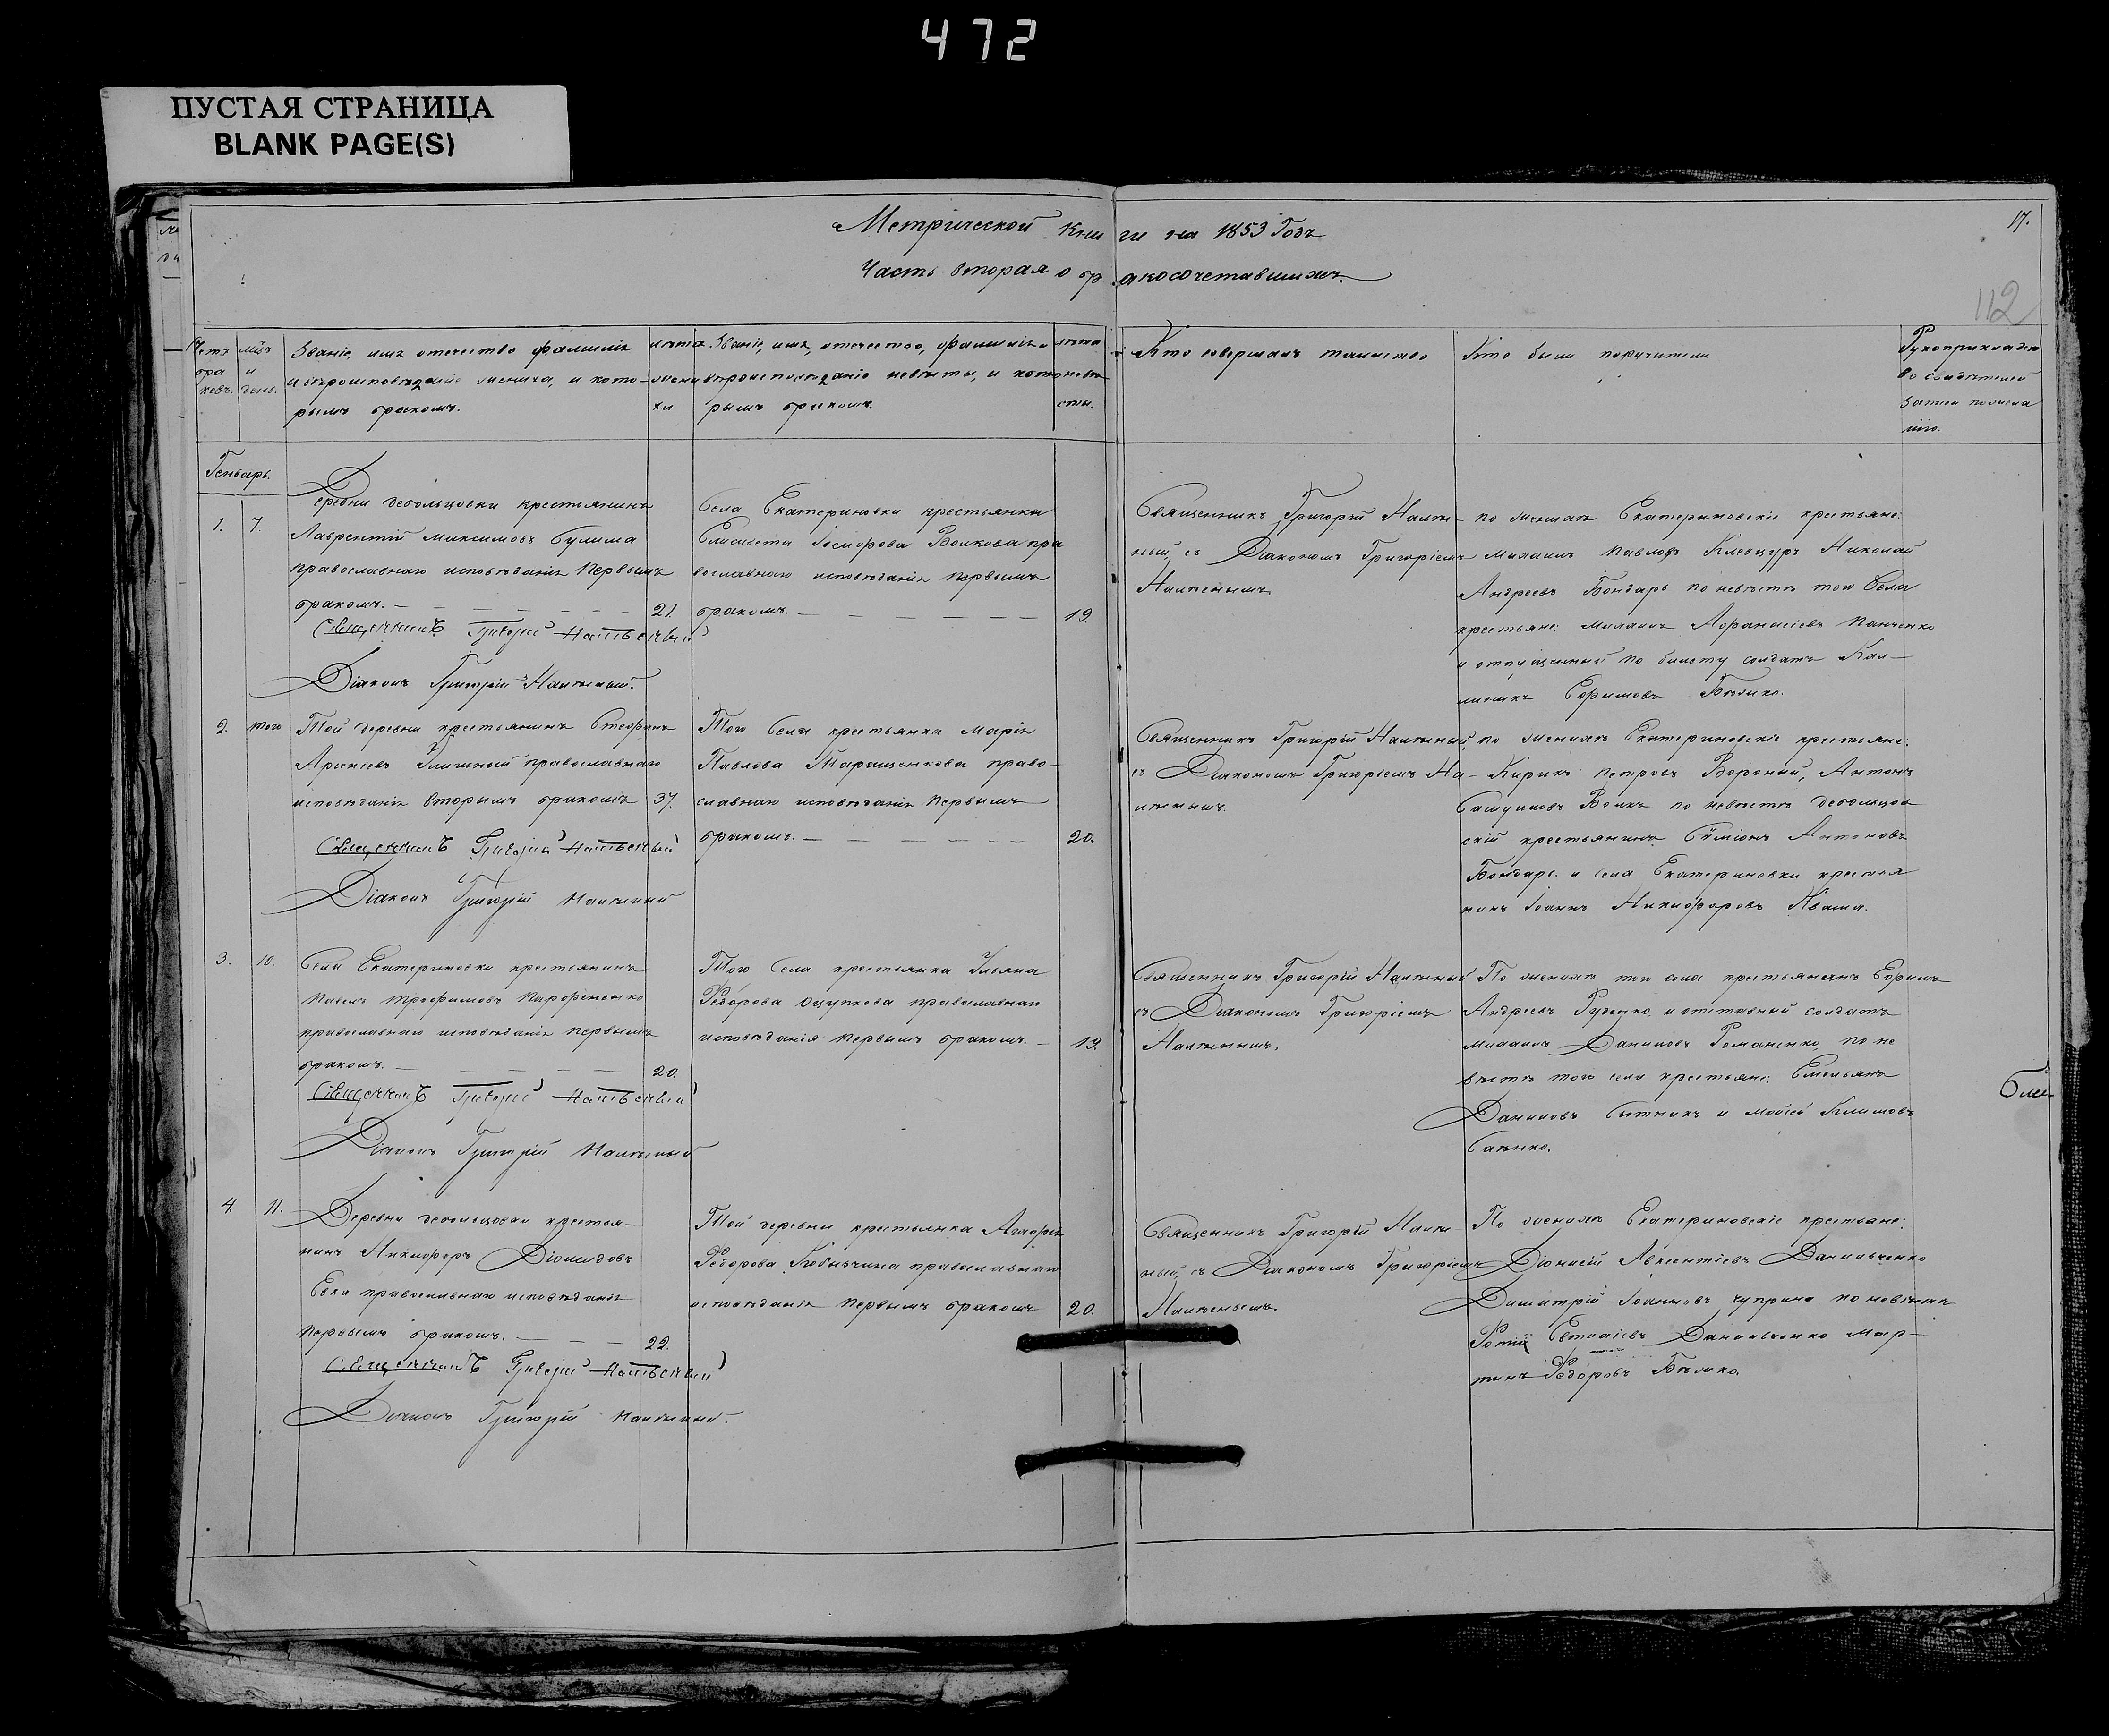 472
ПУСТАЯ СТРАНИЦА
BLANK PAGE(S)
17.
112
Метрической книги на 1853 Годъ
Часть вторая о бракосочетавшихъ.
Четъ браковъ.
мцъ и день.
Званіе, имя отечество фамилія
и вѣроисповѣданіе жениха, и кото-
рымъ бракомъ.
лѣта
жени
хи
Званіе, имя, отечество, фамилія и
вѣроисповѣданіе невѣсты, и кото
рымъ бракомъ.
лѣта
невѣ
сты.
Кто совершалъ таинство
Кто были поручители
Рукоприкладство свидѣтелей
Генварь.
1.
7.
Деревни Дебольцовки крестьянинъ
Лаврентій Максимовъ Булима
православнаго исповѣданія первымъ
бракомъ. — 21.
Священникъ Григорій Налѣсный
Діаконъ Григорій Налѣсный.
Села Екатериновки крестьянка
Елисавета Волкова пра
вославнаго исповѣданія первымъ
бракомъ. — 19.
Священникъ Григорій Налѣс-
ный, съ Діакономъ Григоріемъ
Налѣснымъ
по женихѣ Екатериновскіе крестьяне:
Михаилъ Павловъ Николай
Андреевъ Бондарь по невѣстѣ того села
крестьяне: Михаилъ Афанасіевъ Панченко
и отпущенный по билету солдатъ Кал-
линикъ Ефимовъ Бѣлико.
2.
того
Той деревни крестьянинъ Стефанъ
православнаго
исповѣданія вторымъ бракомъ 37.
Священникъ Григорій Налѣсный
Діаконъ Григорій Налѣсный
Того Села крестьянка Марія
Павлова Таращенкова право-
славнаго исповѣданія первымъ
бракомъ. — 20.
Священникъ Григорій Налѣсный
съ Діакономъ Григоріемъ На-
лѣснымъ.
по женихѣ Екатериновскіе крестьяне:
Кирикъ Петровъ Вороный, Антонъ
Волкъ по невѣстѣ Дебольцов
скій крестьянинъ Сѵмеонъ Антоновъ
Бондарь и села Екатериновки крестья
нинъ Іоаннъ Никифоровъ Кваша.
3.
10.
Села Екатериновки крестьянинъ
Павелъ Трофимовъ Парфененко
православнаго исповѣданія первымъ
бракомъ. — 20.
Священникъ Григорій Налѣсный
Діаконъ Григорій Налѣсный
Того Села крестьянка Ульяна
Ѳедорова Ощупкова православнаго
исповѣданія первымъ бракомъ. — 19.
Священникъ Григорій Налѣсный
съ Діакономъ Григоріемъ
Налѣснымъ.
По женихѣ того села крестьянинъ Ефимъ
Андреевъ Руденко, и отставный солдатъ
Михаилъ Даниловъ Романенко, по не
вѣстѣ того села крестьяне: Емельянъ
Даниловъ Сытникъ и Мойсей Климовъ
4.
11.
Деревни Дебольцовки крестья-
нинъ Никифоръ Діомидовъ
православнаго исповѣданія
первымъ бракомъ. — 22.
Священникъ Григорій Налѣсный
Діаконъ Григорій Налѣсный.
Той деревни крестьянка Агафія
Ѳедорова православнаго
исповѣданія первымъ бракомъ 20.
Священникъ Григорій Налѣс
ный, съ Діакономъ Григоріемъ
Налѣснымъ
По женихѣ Екатериновскіе крестьяне:
Діонисій Авксентіевъ Данильченко
Димитрій Іоанновъ Чуприна по невѣстѣ
Фотій Данильченко Мар-
тинъ Ѳедоровъ Бѣлико